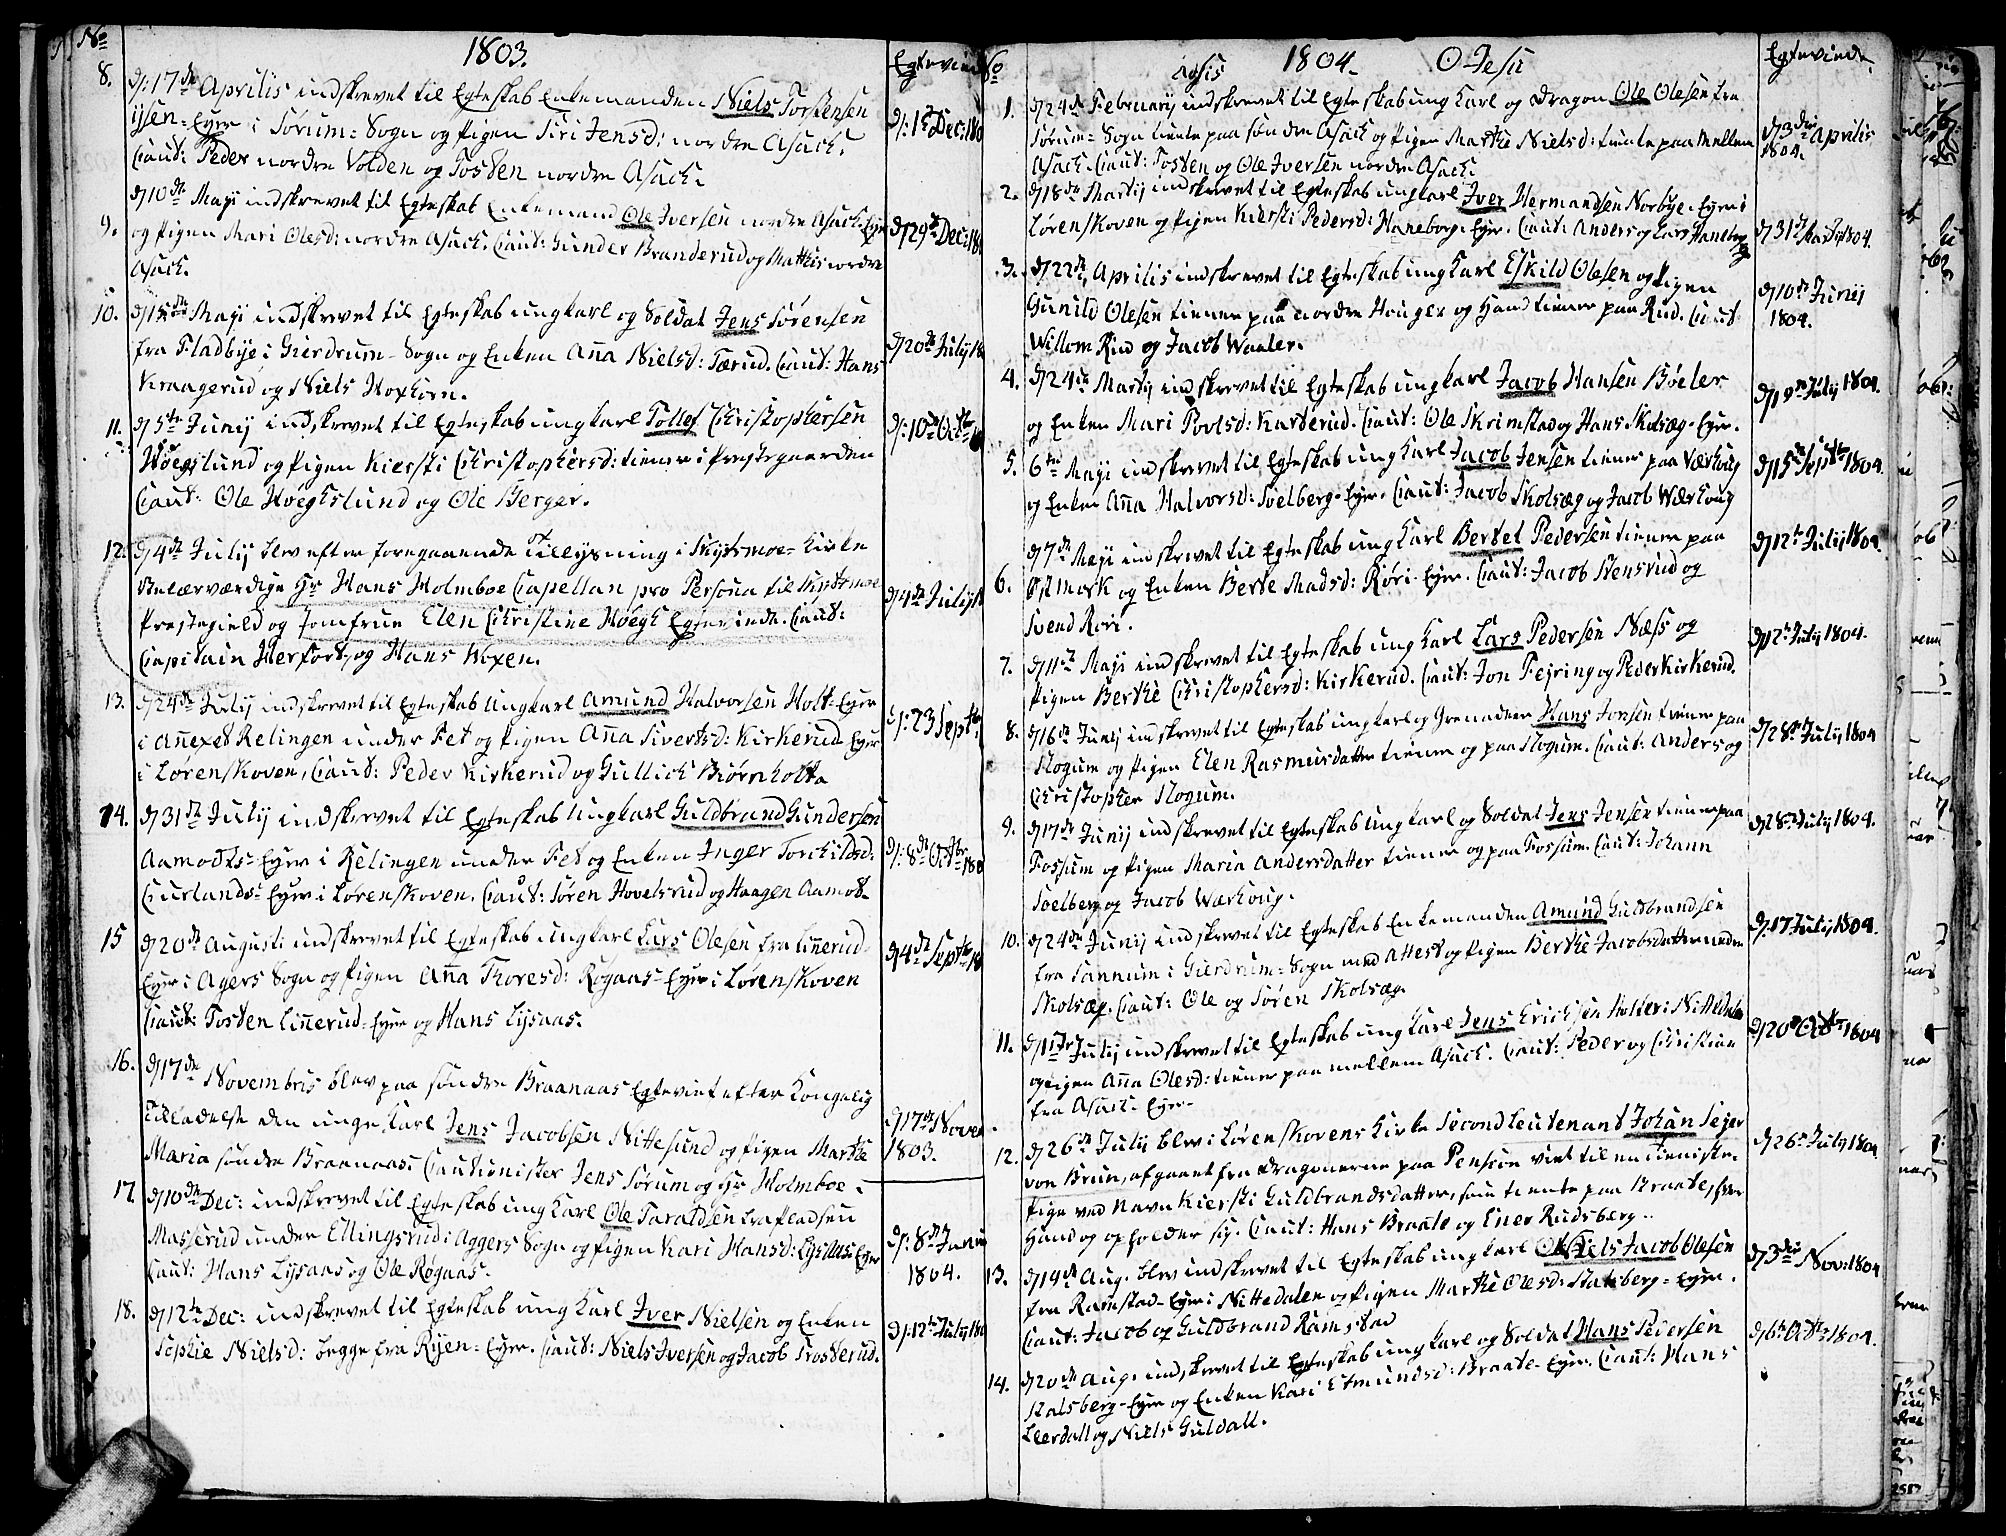 No
1803.
Egtevind
8. d: 17de Aprilis indskrevet til Egteskab Enkemanden Niels Torstensen
ijsen-Eyer i Sørum-Sogn og Pigen Siri Jensd: nordre Asach.
Caut: Peder nordre Volden og Tosten nordre Asach.
d: 1t Dec: 180
9. d 10de Maji indskrevet til Egteskab Enkemand Ole Iversen nordre Asach-Eyer
og Pigen Mari Olesd: nordre Asach. Caut: Gunder Branderud og Mathis nordre
Asach.
d 29de Dec: 18
10. d 15de Maji indskrevet til Egteskab ungkarl og Soldat Jens Sørensen
fra Fladbye i Gierdrum-Sogn og Enken Aña Nielsd: Tærud. Caut: Hans
Kraagerud og Niels Hoxhorn.
d 20de Julij 18
11. d 5te Junij indskrevet til Egteskab ungkarl Tollef Christophersen
Høegslund og Pigen Kiersti Christophersd: tiener i Prestegaarden
Caut: Ole Høeghslund og Ole Berger.
d: 10de Octbr
12. d 4de Julij blev efter foregaaende Tillysning i Skydsmoe-Kirke
Velærværdige Hr Hans Holmboe Capellan pro Persona til Skydsmoe
Prestegield og Jomfrue Elen Christine Høegh Egteviede. Caut:
Capitain Herfordt og Hans Woxen.
d 4de Julij
13. d 24de Julij indskrevet til Egteskab Ungkarl Amund Halvorsen Holt-Eyer
i Añexet Relingen under Fet og Pigen Aña Sivertsd: Kirkerud Eyer
i Lørenskoven, Caut: Peder Kirkerud og Gullich Biørnholta
d: 23 Septbr
14. d 31te Julij indskrevet til Egteskab Ungkarl Guldbrand Gundersen
Aamodts-Eyer i Relingen under Fet og Enken Inger Torchildsd:
Curlands-Eyer i Lørenskoven. Caut: Søren Hovelsrud og Haagen Aamot
d: 8de Octbr 180
15 d 20de Augusti indskrevet til Egteskab ungkarl Lars Olesen fra Liñerud
Eyer i Agers Sogn og Pigen Aña Thoresd: Røgaas-Eyer i Lørenskoven
Caut: Tosten Liñerud-Eyer og Hans Lysaas.
d 4de Septbr 18
16. d 17de Novembris blev paa søndre Braanaas Egteviet efter Kongelig
Tilladelse den unge Karl Jens Jacobsen Nittesund og Pigen Marthe
Maria søndre Braanaas: Cautionister Jens Sørum og Hr Holmboe.
d 17de Novem
1803.
17. d 10de Dec: indskrevet til Egteskab ung Karl Ole Taraldsen
Masserud under Ellingsrud i Aggers Sogn og Pigen Kari Hansd: Lysaas Eyer
Caut: Hans Lysaas og Ole Røgaas.
d: 8de Janu
1804.
18. d 12te Dec: indskrevet til Egteskab ung Karl Iver Nielsen og Enken
Sophie Nielsd: begge fra Rijen-Eyer. Caut: Niels Iversen og Jacob Trosterud.
d: 12te Julij 180
No
1804. O-Jesu
Egteviede
1. d 24de Februarij indskrevet til Egteskab ung Karl og Dragon Ole Olesen fra
Sørum-Sogn tiente paa søndre Asach og Pigen Marthe Nielsd: tiente paa Mellem
Asach. Caut: Tosten og Ole Iversen nordre Asach.
d 3die Aprilis
1804.
2. d 18de Martij indskrevet til Egteskab ungkarl Iver Hermandsen Norbye-Eyer i
Lørenskoven og Pigen Kiersti Pedersd: Haneborg-Eyer. Caut: Anders og Lars Haneborg
d 31te Martij 1804.
3. d 22de Aprilis indskrevet til Egteskab ung Karl Eskild Olesen og Pigen
Gunild Olesen tiener paa nordre Houger og Hand tiener paa Rud. Caut:
Willom Riud og Jacob Waaler.
d 10de Junij
1804.
4. d 24de Martij indskrevet til Egteskab ung Karl Jacob Hansen Bøeler
og Enken Mari Povlsd: Karterud. Caut: Ole Skrimstad og Hans Skolsæg-Eyer.
d 19de Julij 1804.
5. 6te Maji indskrevet til Egteskab ung Karl Jacob Jensen tiener paa Værhoug
og Enken Aña Halvorsd: Soelberg-Eyer. Caut: Jacob Skolsæg og Jacob Wærhoug
d 15de Septbr 1804.
6. d 7de Maji indskrevet til Egteskab ung Karl Bertel Pedersen tiener paa
Østmork og Enken Berte Madsd: Røri-Eyer. Caut: Jacob Stensrud og
Svend Røri.
d 12te Julij 1804.
7. d 11te Maji indskrevet til Egteskab ung Karl Lars Pedersen Næss og
Pigen Berthe Christophersd: Kirkerud. Caut: Jon Fejring og Peder Kirkerud.
d 12te Julij 1804.
8. d 16de Junij indskrevet til Egteskab ungkarl og Grenadeer Hans Jonsen tiener paa
Slogum og Pigen Elen Rasmusdatter tiener og paa Slogum. Caut: Anders og
Christopher Slogum.
d 28de Julij 1804
9. d 17de Junij indskrevet til Egteskab Ung Karl og Soldat Jens Jensen tiener paa
Fossum og Pigen Maria Andersdatter tiener og paa Fossum. Caut: Johann
Soelberg og Jacob Wærhoug.
d 28de Julij 1804.
10. d 24de Junij indskrevet til Egteskab Enkemanden Amund Guldbrandsen
fra Sannum i Gierdrum-Sogn med Attest og Pigen Berthe Jacobsdatter nedre
Skolsæg. Caut: Ole og Søren Skolsæg.
d: 17 Julij 1804.
11. d 11te Julij indskrevet til Egteskab ung Karl Jens Erichsen Holter i Nittedalen
og Pigen Aña Olesd: tiener paa mellem Asach. Caut: Peder og Christian
fra Asach-Eyer.
d 20de Octbr 1804
12. d 26de Julij blev i Lørenskovens Kirke Second Leutenant Johan Sejer
von Brun, afgaaet fra Dragonerne paa Pension viet til en tieniste-
Pige ved Navn Kiersti Guldbrandsdatter, som tiente paa Braate, hvor
Hand og opholder sig. Caut: Hans Braate og Ener Rudsberg.
d 26de Julij 1804
13. d 14de Aug. blev indskrevet til Egteskab ung karl Niels Jacob Olesen
fra Ramstad-Eyer i Nittedalen og Pigen Marthe Olesd: Stalsberg-Eyer.
Caut: Jacob og Guldbrand Ramstad
d 3die Nov: 1804
14. d 20de Aug: indskrevet til Egteskab ung karl og Soldat Hans Pedersen
Stalsberg-Eyer og Enken Kari Edmundsd: Braate-Eyer. Caut: Hans
Leerdall og Niels Guldall.
d 6te Octbr 1804.